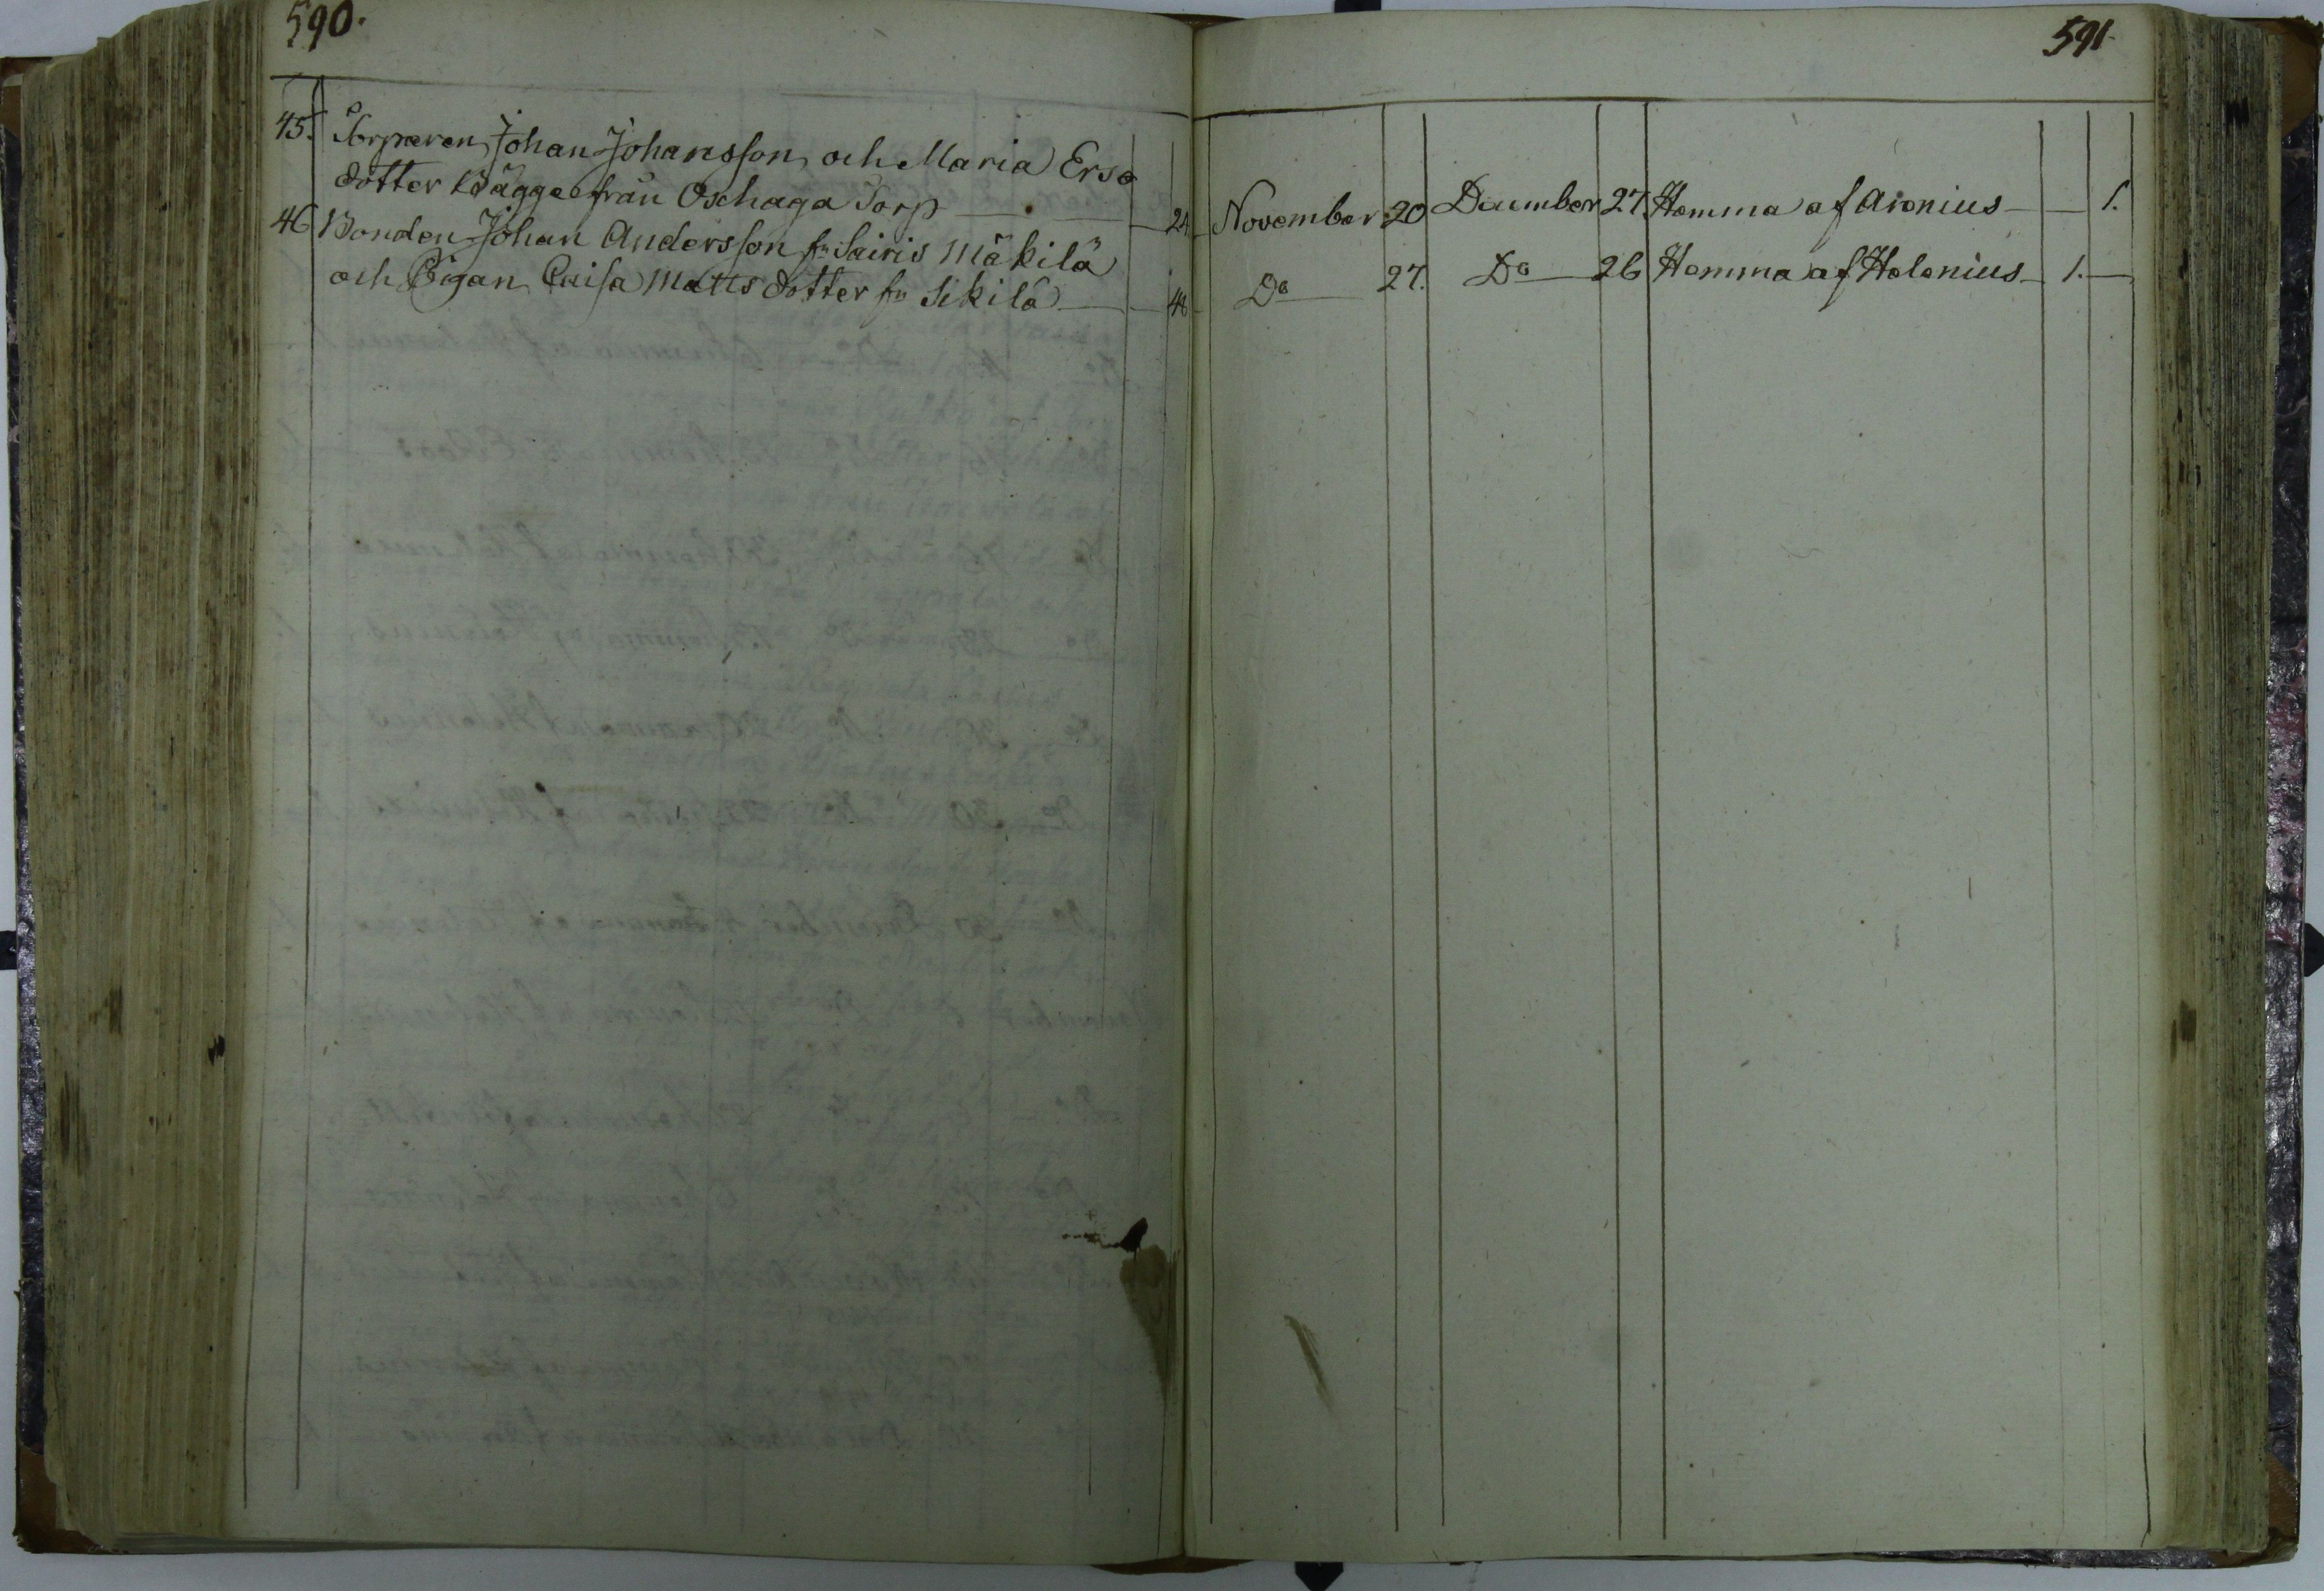 590.
591.
45. Torparen Johan Johansson och Maria Ers
dotter Bägge från Oschaga Torp — 24 November 20 December 27. Hemma af Aronius — 1.
46 Bonden Johan Andersson fn Sairis Mäkilä
och Pigan Caisa Matts dotter fn Sikilä — D° — 27. D° — 26 Hemma af Helenius — 1. —